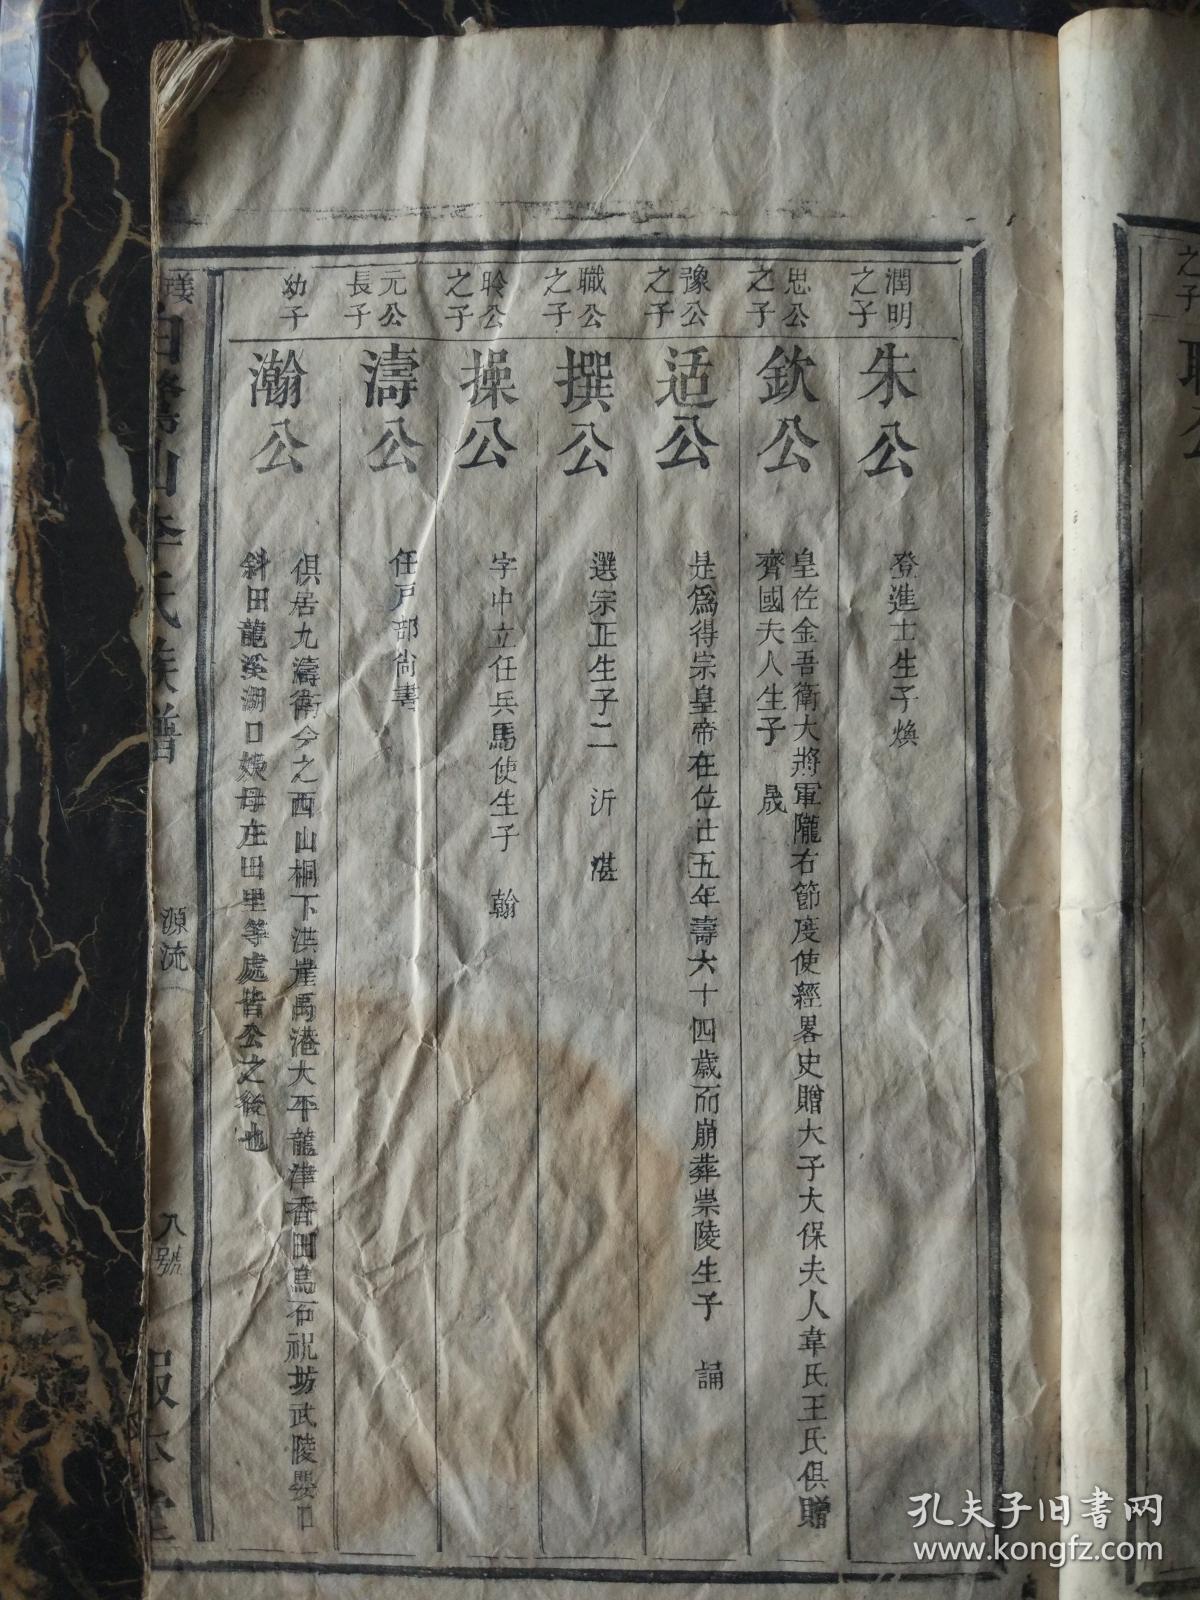 潤明
之子
朱公
登進士生子煥
思公
之子
欽公
皇佐金吾衛大將軍隴右節度使經畧史贈大子大保夫人韋氏王氏俱贈
齊國夫人生子 晟
豫公
之子
适公
是爲得宗皇帝在位廿五年壽六十四歲而崩葬崇陵生子 誦
職公
之子
撰公
選宗正生子二 沂 堪
聆公
之子
操公
字中立任兵馬使生子 翰
元公
長子
濤公
任戸部尙書
幼子
瀚公
俱居九濤衛今之西山桐下洪崖禹港大平龍津香田烏石祝坊武陵嬰口
斜田龍溪湖口姨母庄田里等處皆公之後也
山李氏族譜
源流
八號
報本堂
之子
公
孔夫子旧书网
www.kongfz.com